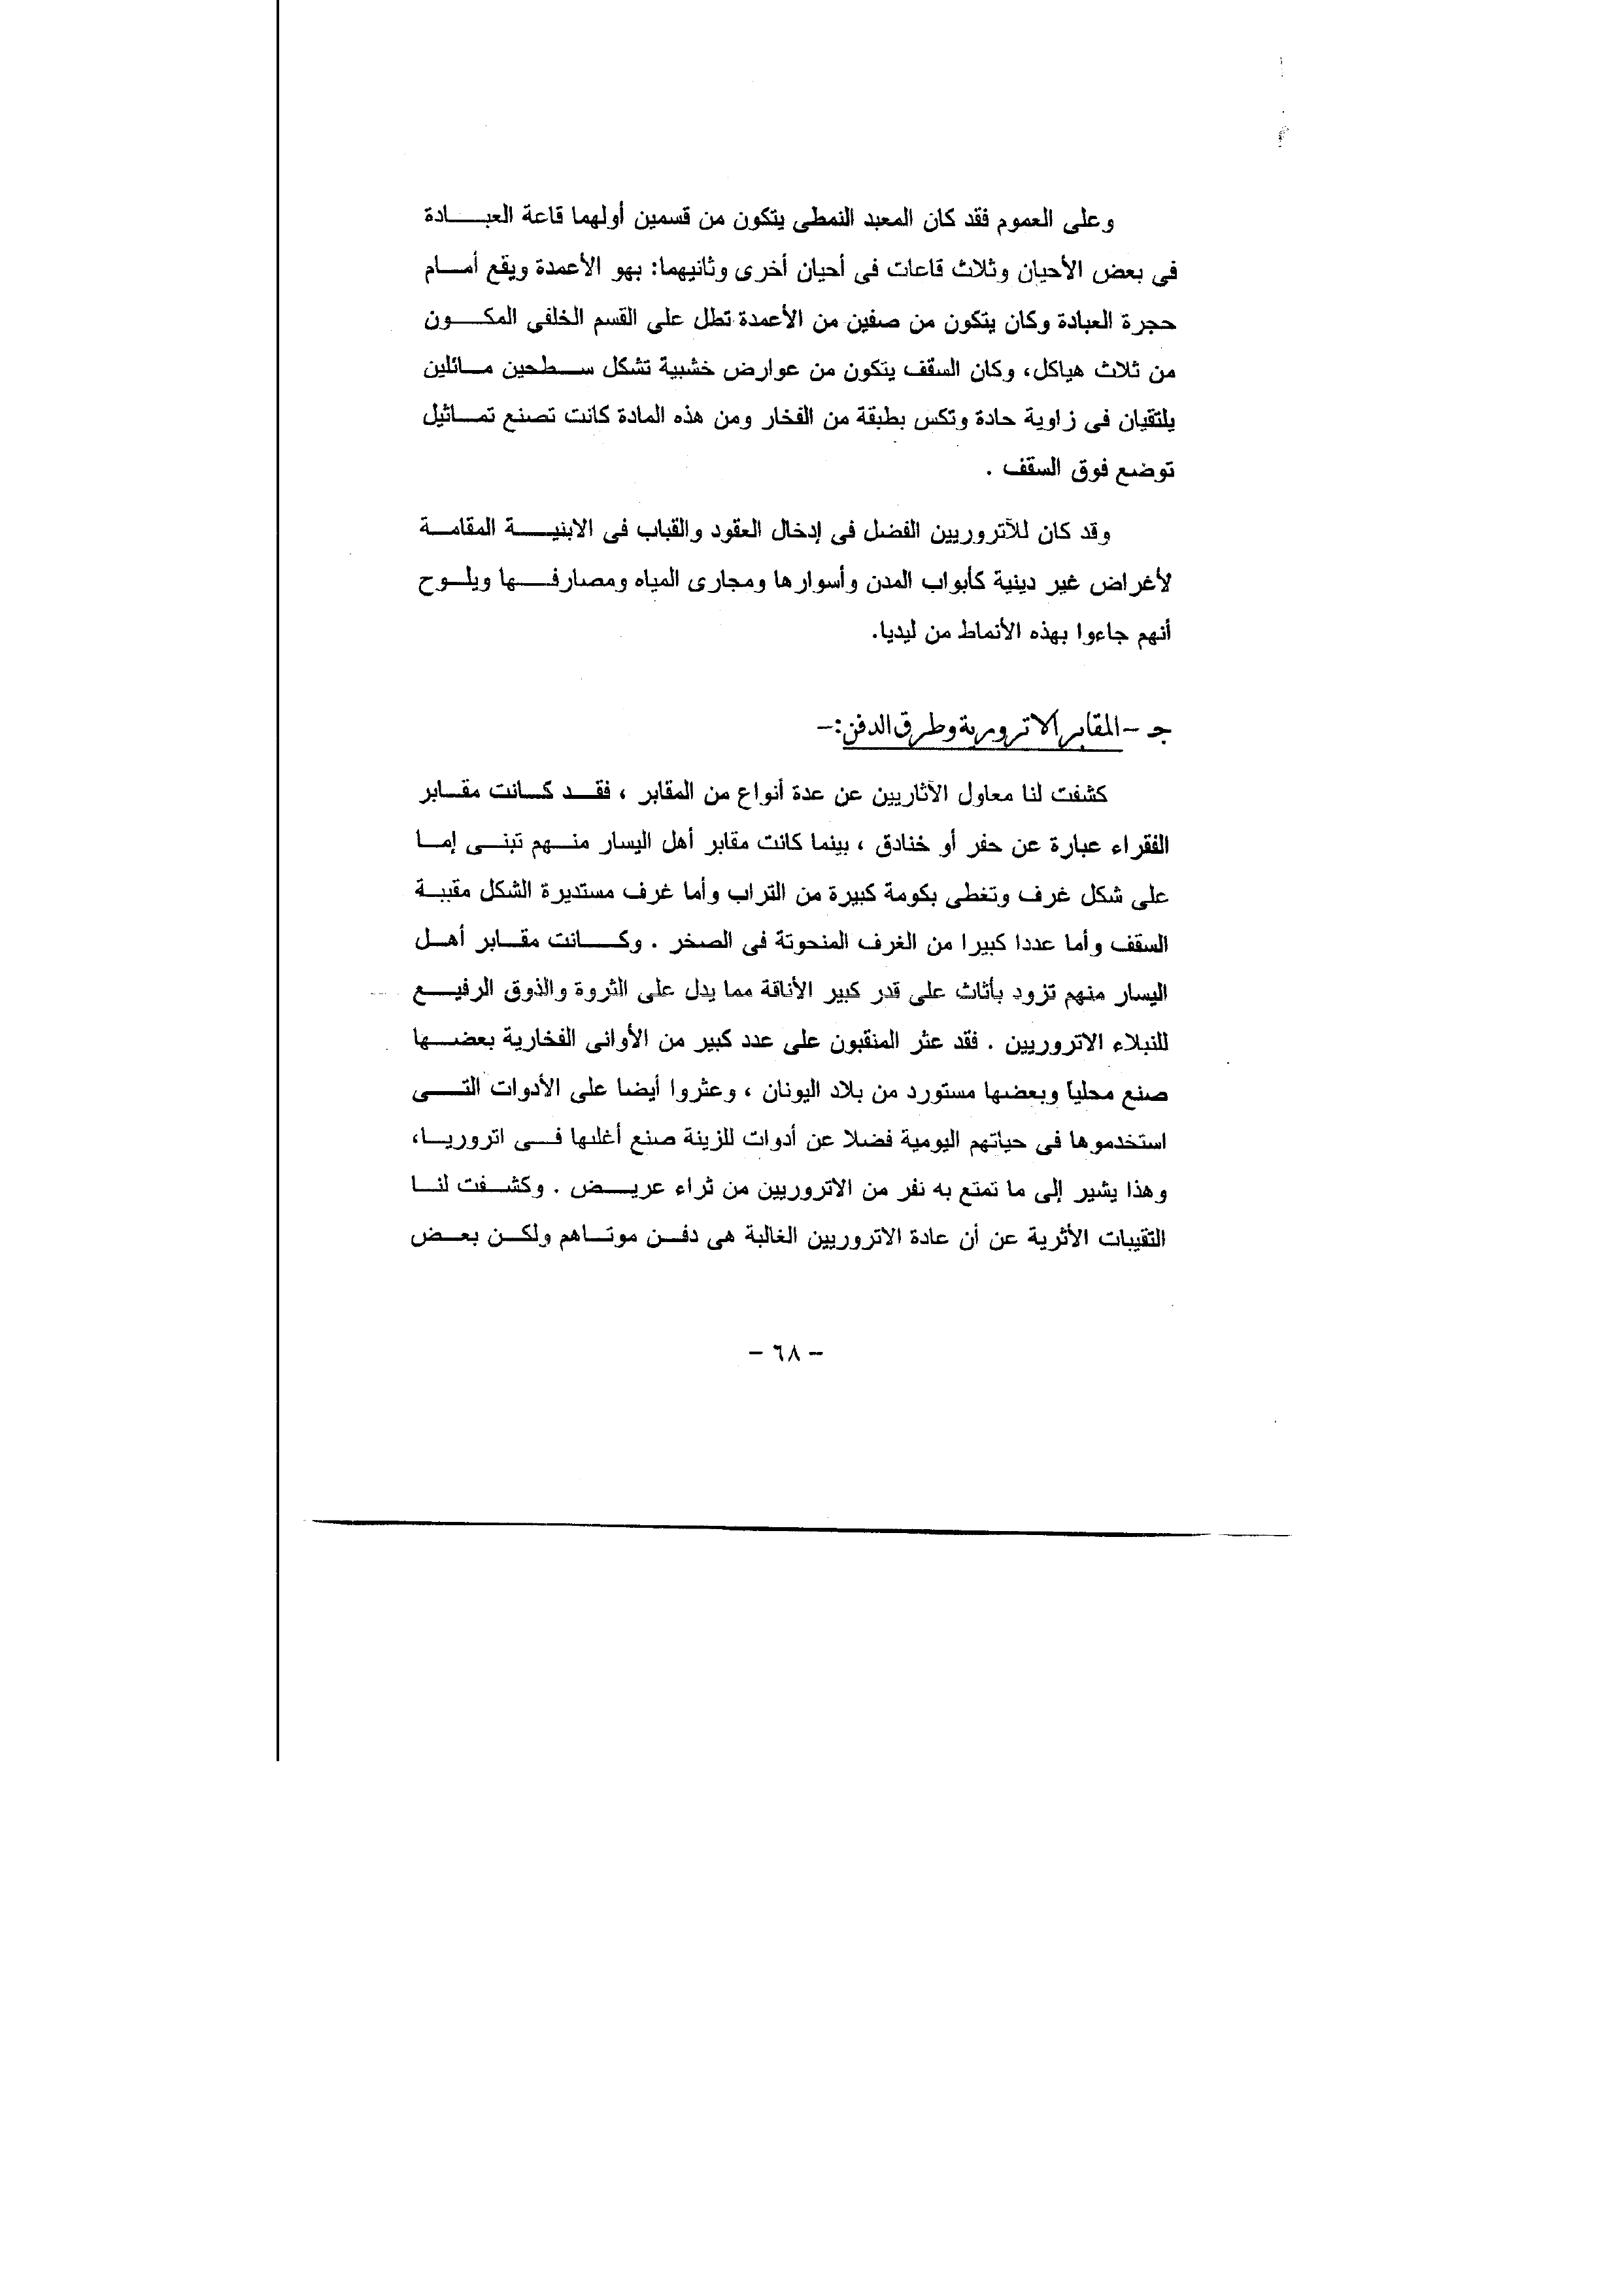 وعلى العموم فقد كان المعبد النمطى يتكون من قسمين أولهما قاعة العبادة
فى بعض الأحيان وثلاث قاعات فى أحيان أخرى وثانيهما: بهو الأعمدة ويقع أمام
حجرة العبادة وكان يتكون من صفين من الأعمدة تطل على القسم الخلفى المكون
من ثلاث هياكل، وكان السقف يتكون من عوارض خشبية تشكل سطحين مائلين
يلتقيان فى زاوية حادة وتكس بطبقة من الفخار ومن هذه المادة كانت تصنع تماثيل
توضع فوق السقف .
وقد كان للآتروريين الفضل فى إدخال العقود والقباب فى الابنية المقامة
لأغراض غير دينية كأبواب المدن وأسوارها ومجارى المياه ومصارفها ويلوح
أنهم جاءوا بهذه الأنماط من ليديا.
جـ - المقابر الاترورية وطرق الدفن :-
كشفت لنا معاول الآثاريين عن عدة أنواع من المقابر ، فقد كانت مقابر
الفقراء عبارة عن حفر أو خنادق ، بينما كانت مقابر أهل اليسار منهم تبنى إما
على شكل غرف وتغطى بكومة كبيرة من التراب وأما غرف مستديرة الشكل مقببة
السقف وأما عددا كبيرا من الغرف المنحوتة فى الصخر . وكانت مقابر أهل
اليسار منهم تزود بأثاث على قدر كبير الأناقة مما يدل على الثروة والذوق الرفيع
للنبلاء الاتروريين . فقد عثر المنقبون على عدد كبير من الأوانى الفخارية بعضها
صنع محلياً وبعضها مستورد من بلاد اليونان ، وعثروا أيضا على الأدوات التى
استخدموها فى حياتهم اليومية فضلا عن أدوات للزينة صنع أغلبها فى اتروريا،
وهذا يشير إلى ما تمتع به نفر من الاتروريين من ثراء عريض . وكشفت لنا
التقيبات الأثرية عن أن عادة الاتروريين الغالبة هى دفن موتاهم ولكن بعض
- ٦٨ -